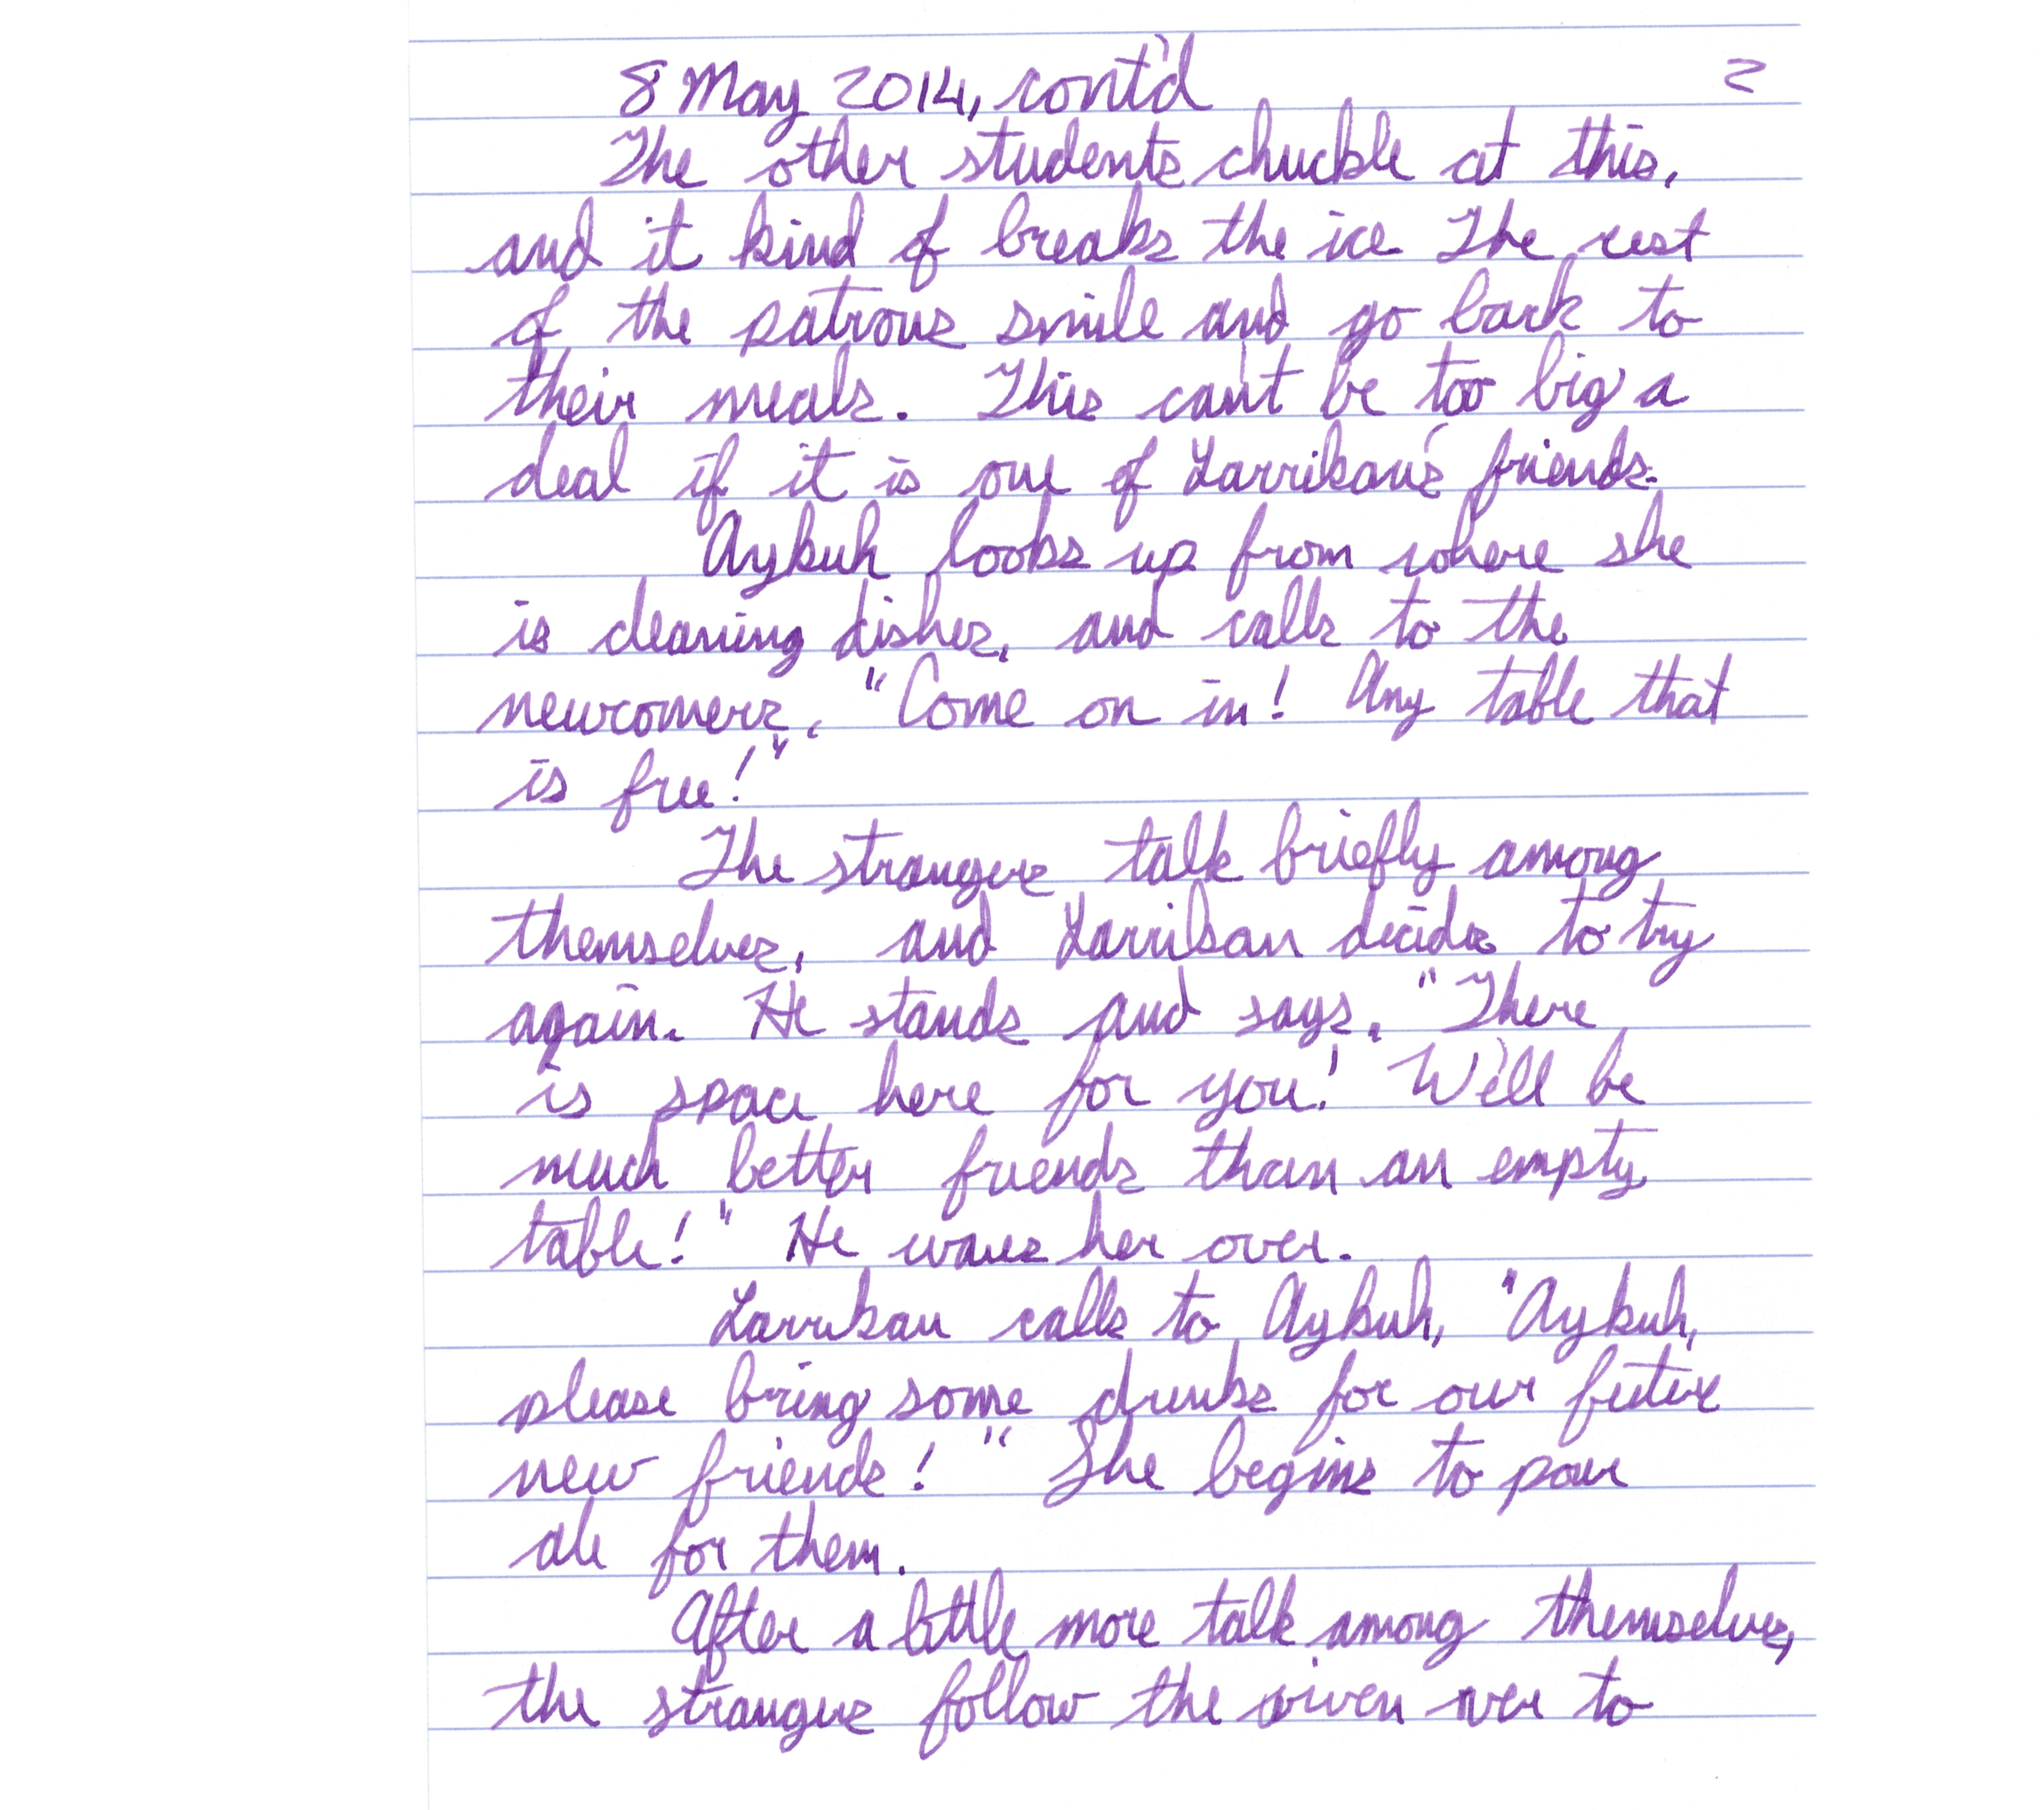 8 May 2014, cont'd 2
The other students chuckle at this,
and it kind of breaks the ice The rest
of the patrons smile and go back to
their meals. This can't be too big a
deal if it is one of Larrikan's friends.
Aykuh looks up from where she
is cleaning dishes, and calls to the
newcomers, "Come on in! Any table that
is free!"
The strangers talk briefly among
themselves, and Larrikan decides to try
again. He stands and says, "There
is space here for you! We'll be
much better friends than an empty
table!" He waves her over.
Larrikan calls to Aykuh, "Aykuh,
please bring some drinks for our future
new friends!" She begins to pour
ale for them.
After a little more talk among themselves,
the strangers follow the over to